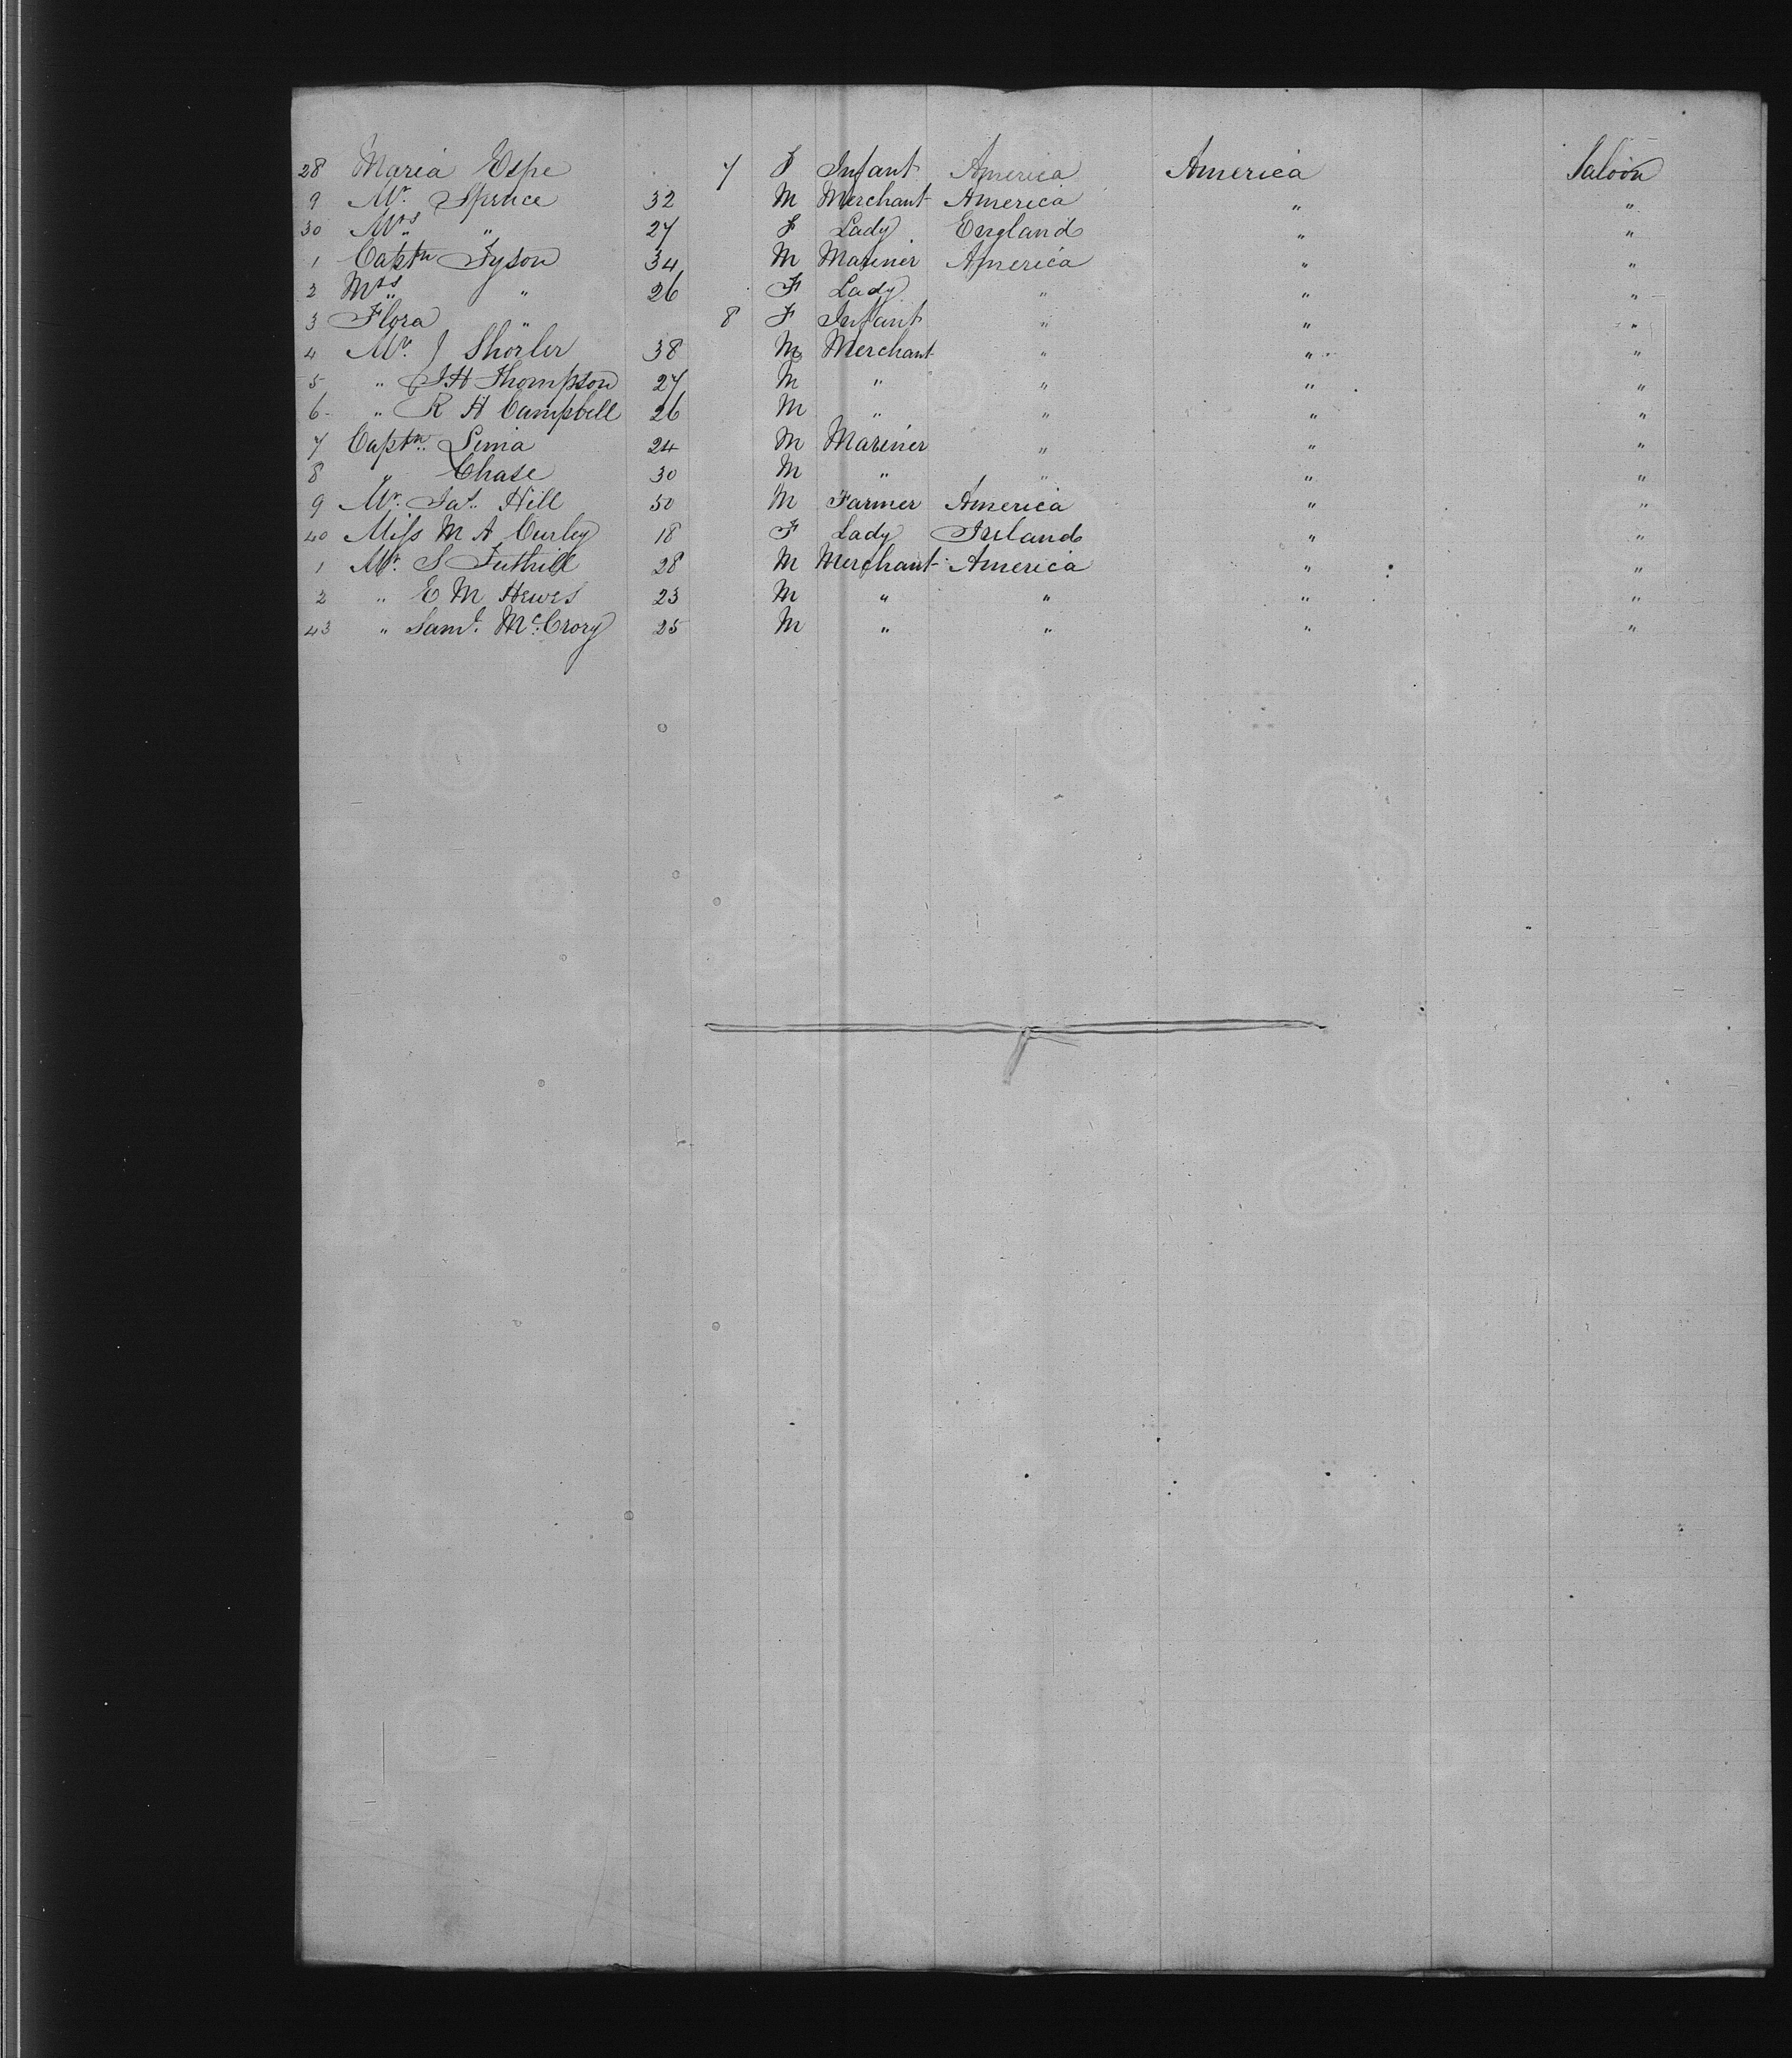 28 Maria Espe 7 F Infant America America Saloon
9 Mr. Spruce 32 M Merchant America " "
30 Mrs " 27 F Lady England " "
1 Captn Tyson 34 M Mariner America " "
2 Mrs " 26 F Lady " " "
3 Flora " 8 F Infant " " "
4 Mr. J Shorler 38 M Merchant " " "
5 " J H Thompson 27 M " " " "
6 " R H Campbell 26 M " " " "
7 Captn. Lima 24 M Mariner " " "
8 " Chase 30 M " " " "
9 Mr. Jas. Hill 50 M Farmer America " "
40 Miss M A Curley 18 F Lady Ireland " "
1 Mr. S Tuthill 28 M Merchant America " "
2 " E M Hewes 23 M " " " "
43 " Saml. McCrory 25 M " " " "